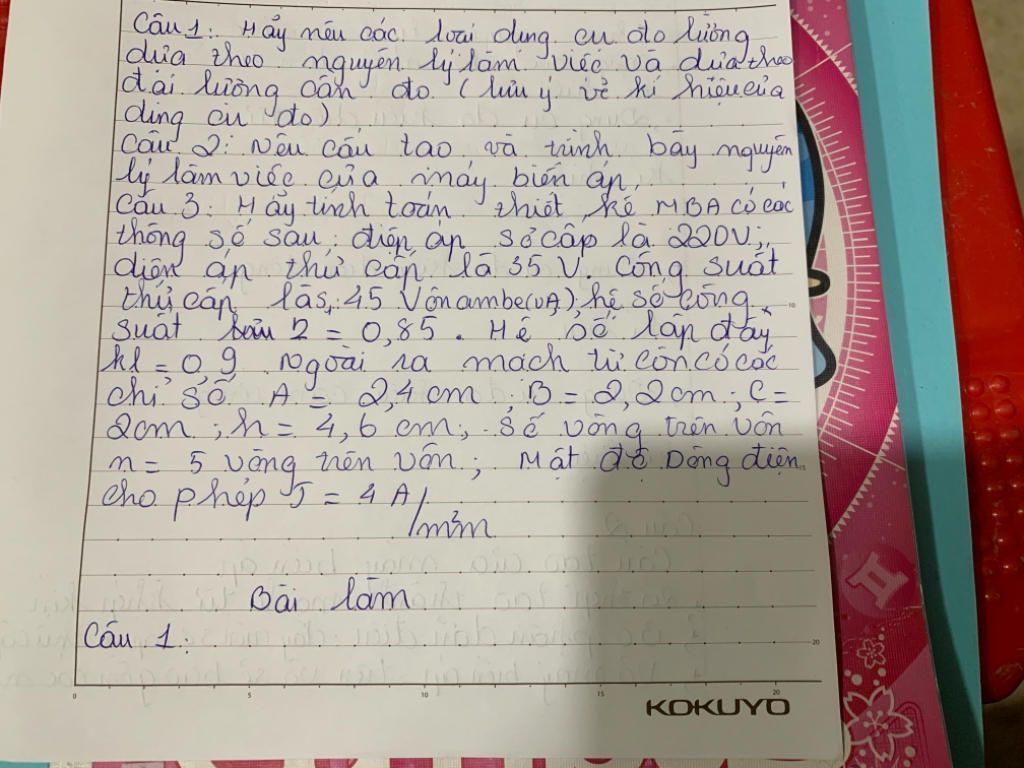 Câu 1: Hãy nêu các loại dụng cụ đo lường
dựa theo nguyên lý làm việc và dựa theo
đại lượng cần đo (lưu ý về kí hiệu của
dụng cụ đo)
Câu 2: Nêu cấu tạo và trình bày nguyên
lý làm việc của máy biến áp,
Câu 3: Hãy tính toán thiết kế MBA có các
thông số sau: điện áp sơ cấp là 220V;
điện áp thứ cấp là 35 V. Công suất
thứ cấp là S, 45 Vônambe(VA), hệ số công
suất 2 = 0,85. Hệ số lấp đầy
kl = 0,9 Ngoài ra mạch từ còn có các
chỉ số A = 2,4 cm; B = 2,2 cm; C =
2cm; h = 4,6 cm; số vòng trên vôn
n = 5 vòng trên vôn; Mật độ Dòng điện
cho phép J = 4 A/
Bài làm
Câu 1:
0 5 10 15 20
10
15
20
KOKUYO